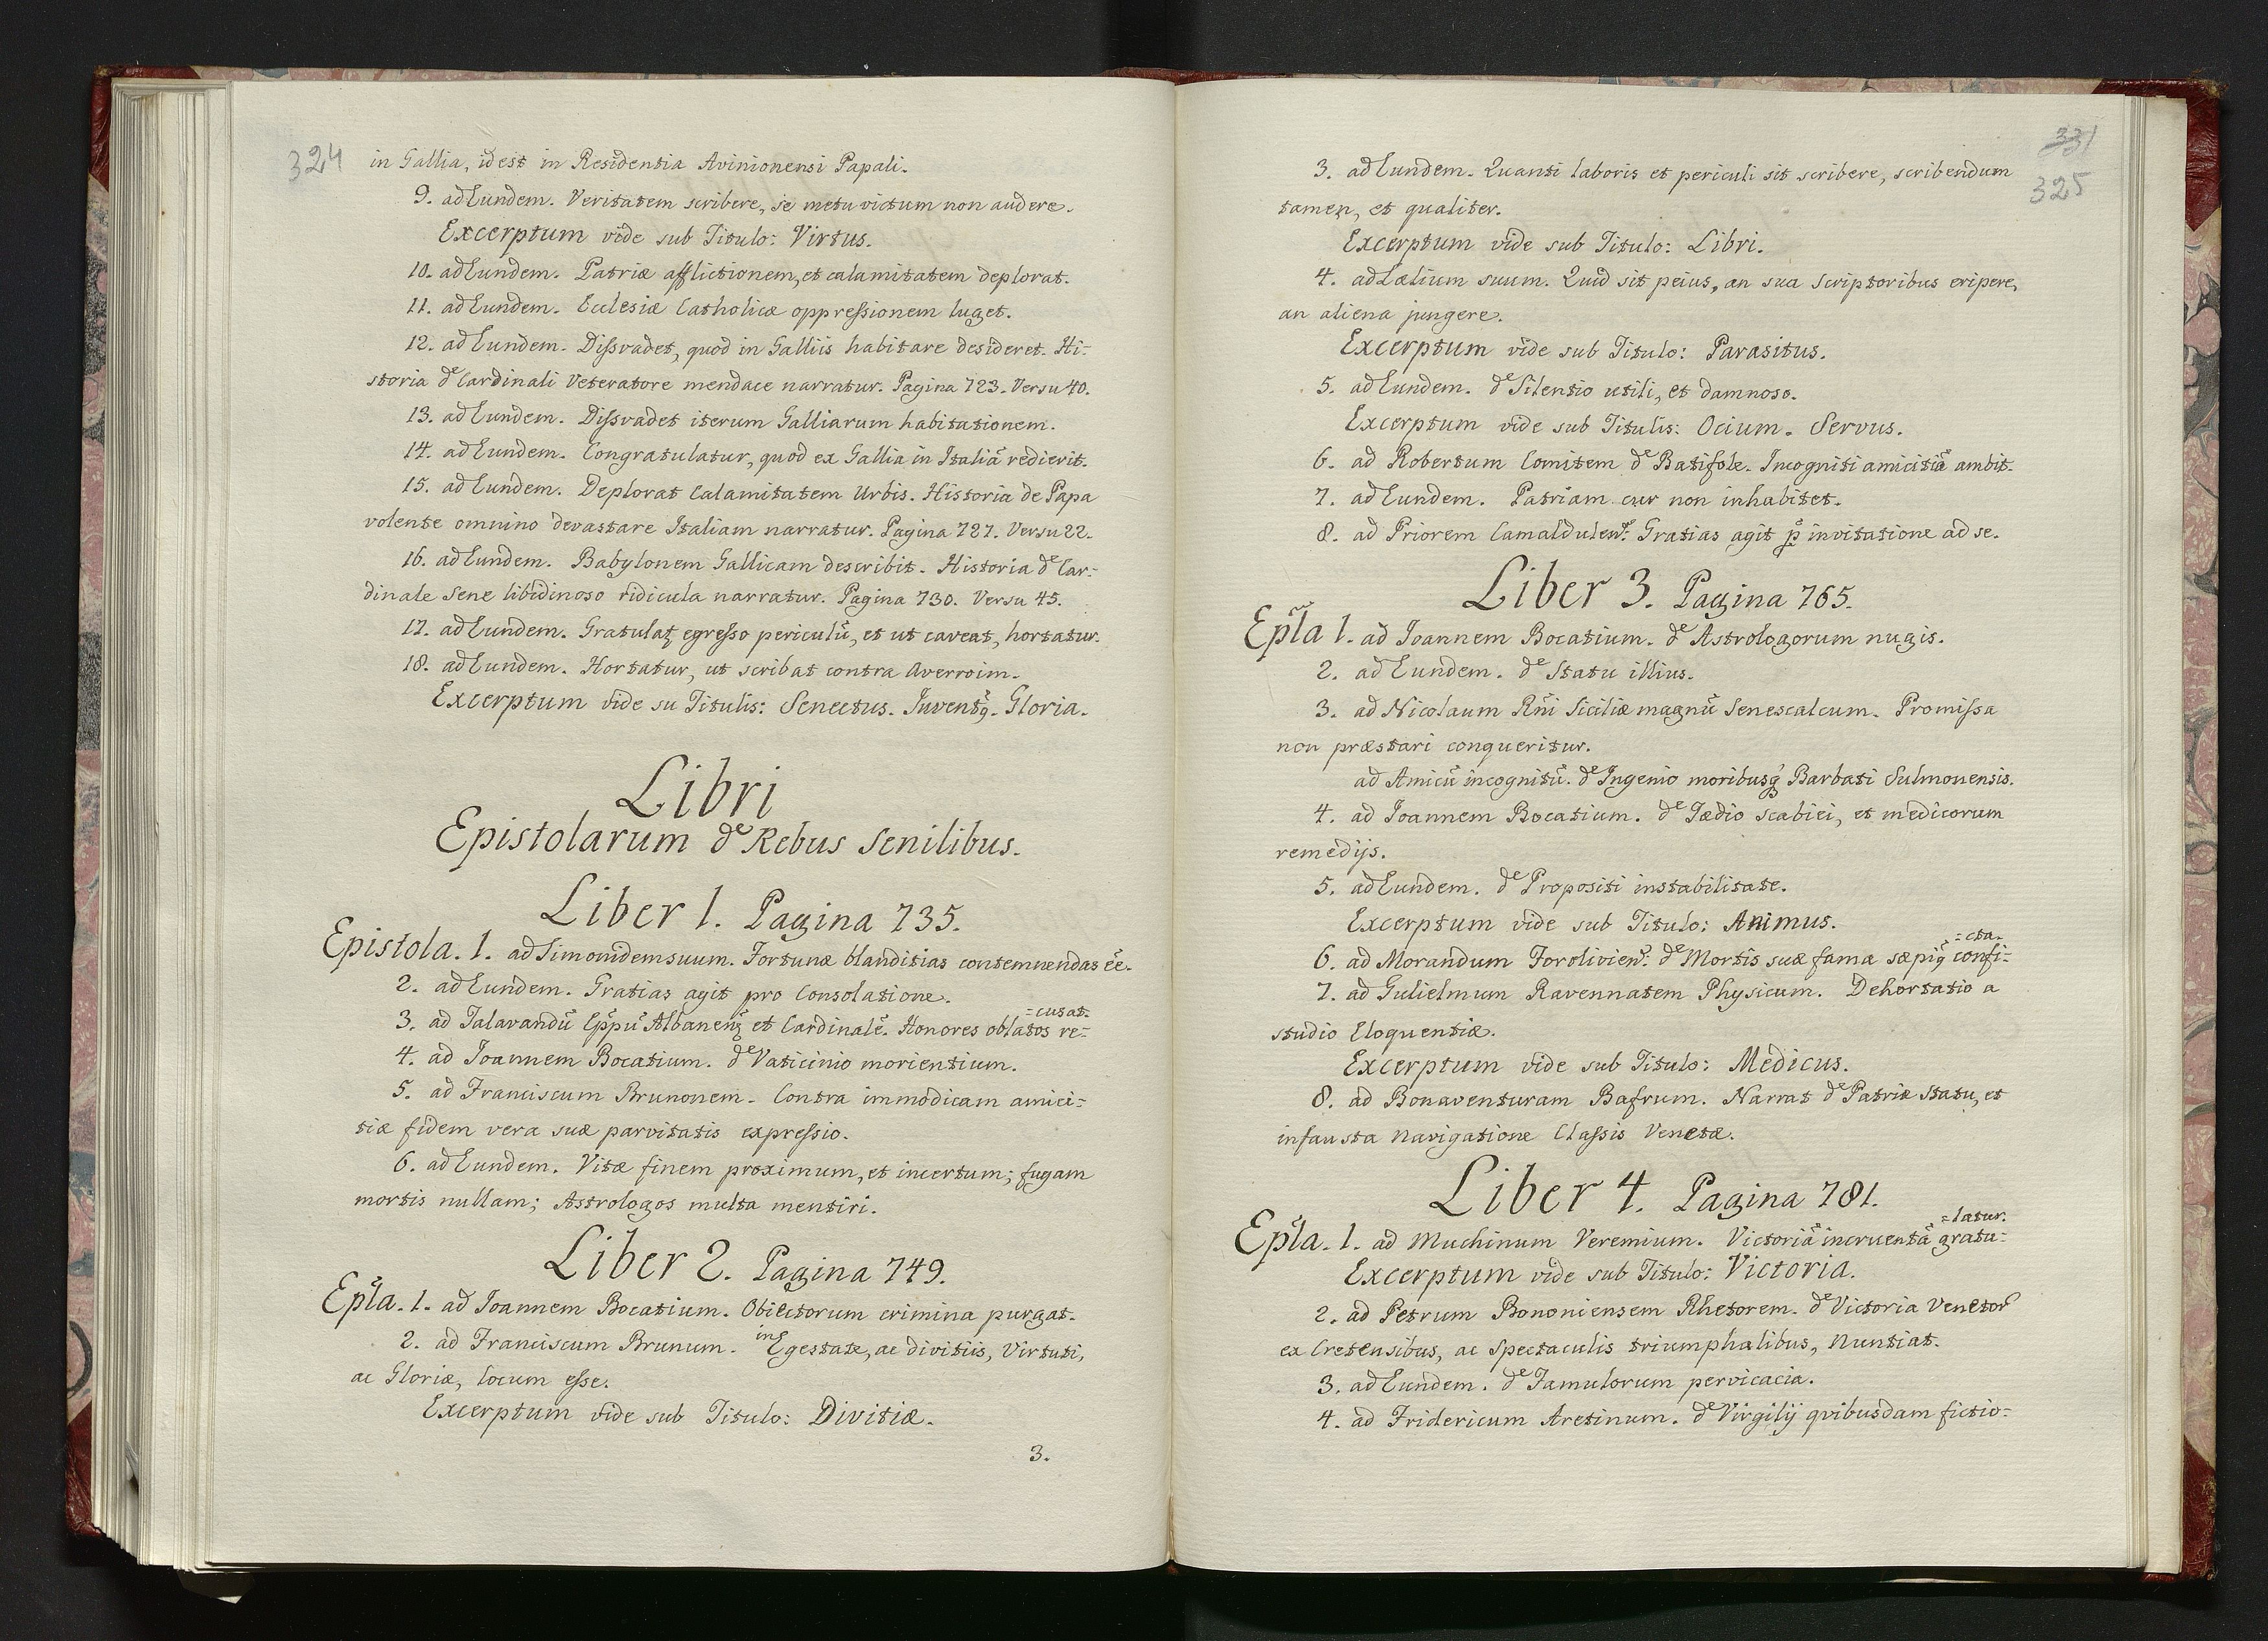 324
in Gallia, id est in Residentia Avinionensi Papali.
9. ad Eundem. Veritatem scribere, se metu victum non audere.
Excerptum vide sub Titulo: Virtus.
10. ad Eundem. Patriæ afflictionem, et calamitatem deplorat.
11. ad Eundem. Ecclesiæ Catholicæ oppreſsionem luget.
12. ad Eundem. Diſsvadet, quod in Galliis habitare desideret. Hi=
storia de Cardinali Veteratore mendace narratur. Pagina 723. Versu 40.
13. ad Eundem. Diſsvadet iterum Galliarum habitationem.
14. ad Eundem. Congratulatur, quod ex Gallia in Italiã redierit.
15. ad Eundem. Deplorat Calamitatem Urbis. Historia de Papa
volente omnino devastare Italiam narratur. Pagina 727. Versu 22.
16. ad Eundem. Babylonem Gallicam describit. Historia de Car=
dinale Sene libidinoso ridicula narratur. Pagina 730. Versu 45.
17. ad Eundem. Gratulatꝛ egreſso periculũ, et ut caveat, hortatur.
18. ad Eundem. Hortatur, ut scribat contra Averroim.
Excerptum vide su Titulis: Senectus. Iuventꝯ. Gloria.
Libri
Epistolarum de Rebus Senilibus.
Liber 1. Pagina 735.
Epistola. 1. ad Simonidem suum. Fortunæ blanditias contemnendas ẽe.
2. ad Eundem. Gratias agit pro Consolatione.
=cusat.
3. ad Talavandũ Ep̃pũ Albanenꝫ et Cardinalẽ. Honores oblatos re=
4. ad Joannem Bocatium. de Vaticinio morientium.
5. ad Franciscum Brunonem. Contra immodicam amici=
tiæ fidem vera suæ parvitatis expreſsio.
6. ad Eundem. Vitæ finem proximum, et incertum; fugam
mortis nullam; Astrologos multa mentiri.
Liber 2. Pagina 749.
Ep̃la. 1. ad Joannem Bocatium. Obiectorum crimina purgat.
2. ad Franciscum Brunum. in Egestate, ac divitiis, Virtuti,
ac Gloriæ, locum eſse.
Excerptum vide sub Titulo: Divitiæ.
3.
331
325
3. ad Eundem. Quanti laboris et periculi sit scribere, scribendum
tamen, et qualiter.
Excerptum vide sub Titulo: Libri.
4. ad Lælium suum. Quid sit peius, an sua Scriptoribus eripere,
an aliena jungere.
Excerptum vide sub Titulo: Parasitus.
5. ad Eundem. de Silentio utili, et damnoso.
Excerptum vide sub Titulis: Ocium. Servus.
6. ad Robertum Comitem de Batifole. Incogniti amicitiã ambit.
7. ad Eundem. Patriam cur non inhabitet.
8. ad Priorem Camaldulen: Gratias agit p̃ invitatione ad se.
Liber 3. Pagina 765.
Ep̃la 1. ad Joannem Bocatium. de Astrologorum nugis.
2. ad Eundem. de Statu illius.
3. ad Nicolaum Rñi Siciliæ magnũ Senescalcum. Promiſsa
non præstari conqueritur.
ad Amicũ incognitũ. de Ingenio moribusq́ Barbati Sulmonensis.
4. ad Joannem Bocatium. de Tædio scabiei, et medicorum
remedijs.
5. ad Eundem. de Propositi instabilitate.
Excerptum vide sub Titulo: Animus.
=cta.
6. ad Morandum Forolivien: de Mortis suæ fama sæpiꝯ confi=
7. ad Gulielmum Ravennatem Physicum. Dehortatio a
studio Eloquentiæ.
Excerptum vide sub Titulo: Medicus.
8. ad Bonaventuram Bafrum. Narrat de Patriæ Statu, et
infausta Navigatione Claſsis Venetæ.
Liber 4. Pagina 781.
=latur.
Ep̃la. 1. ad Muchinum Veremium. Victoriã incruentã gratu=
Excerptum vide sub Titulo: Victoria.
2. ad Petrum Bononiensem Rhetorem. de Victoria Venetoꝝ
ex Cretensibus, ac Spectaculis triumphalibus, Nuntiat.
3. ad Eundem. de Famulorum pervicacia.
4. ad Fridericum Aretinum. de Virgilij qvibusdam fictio=